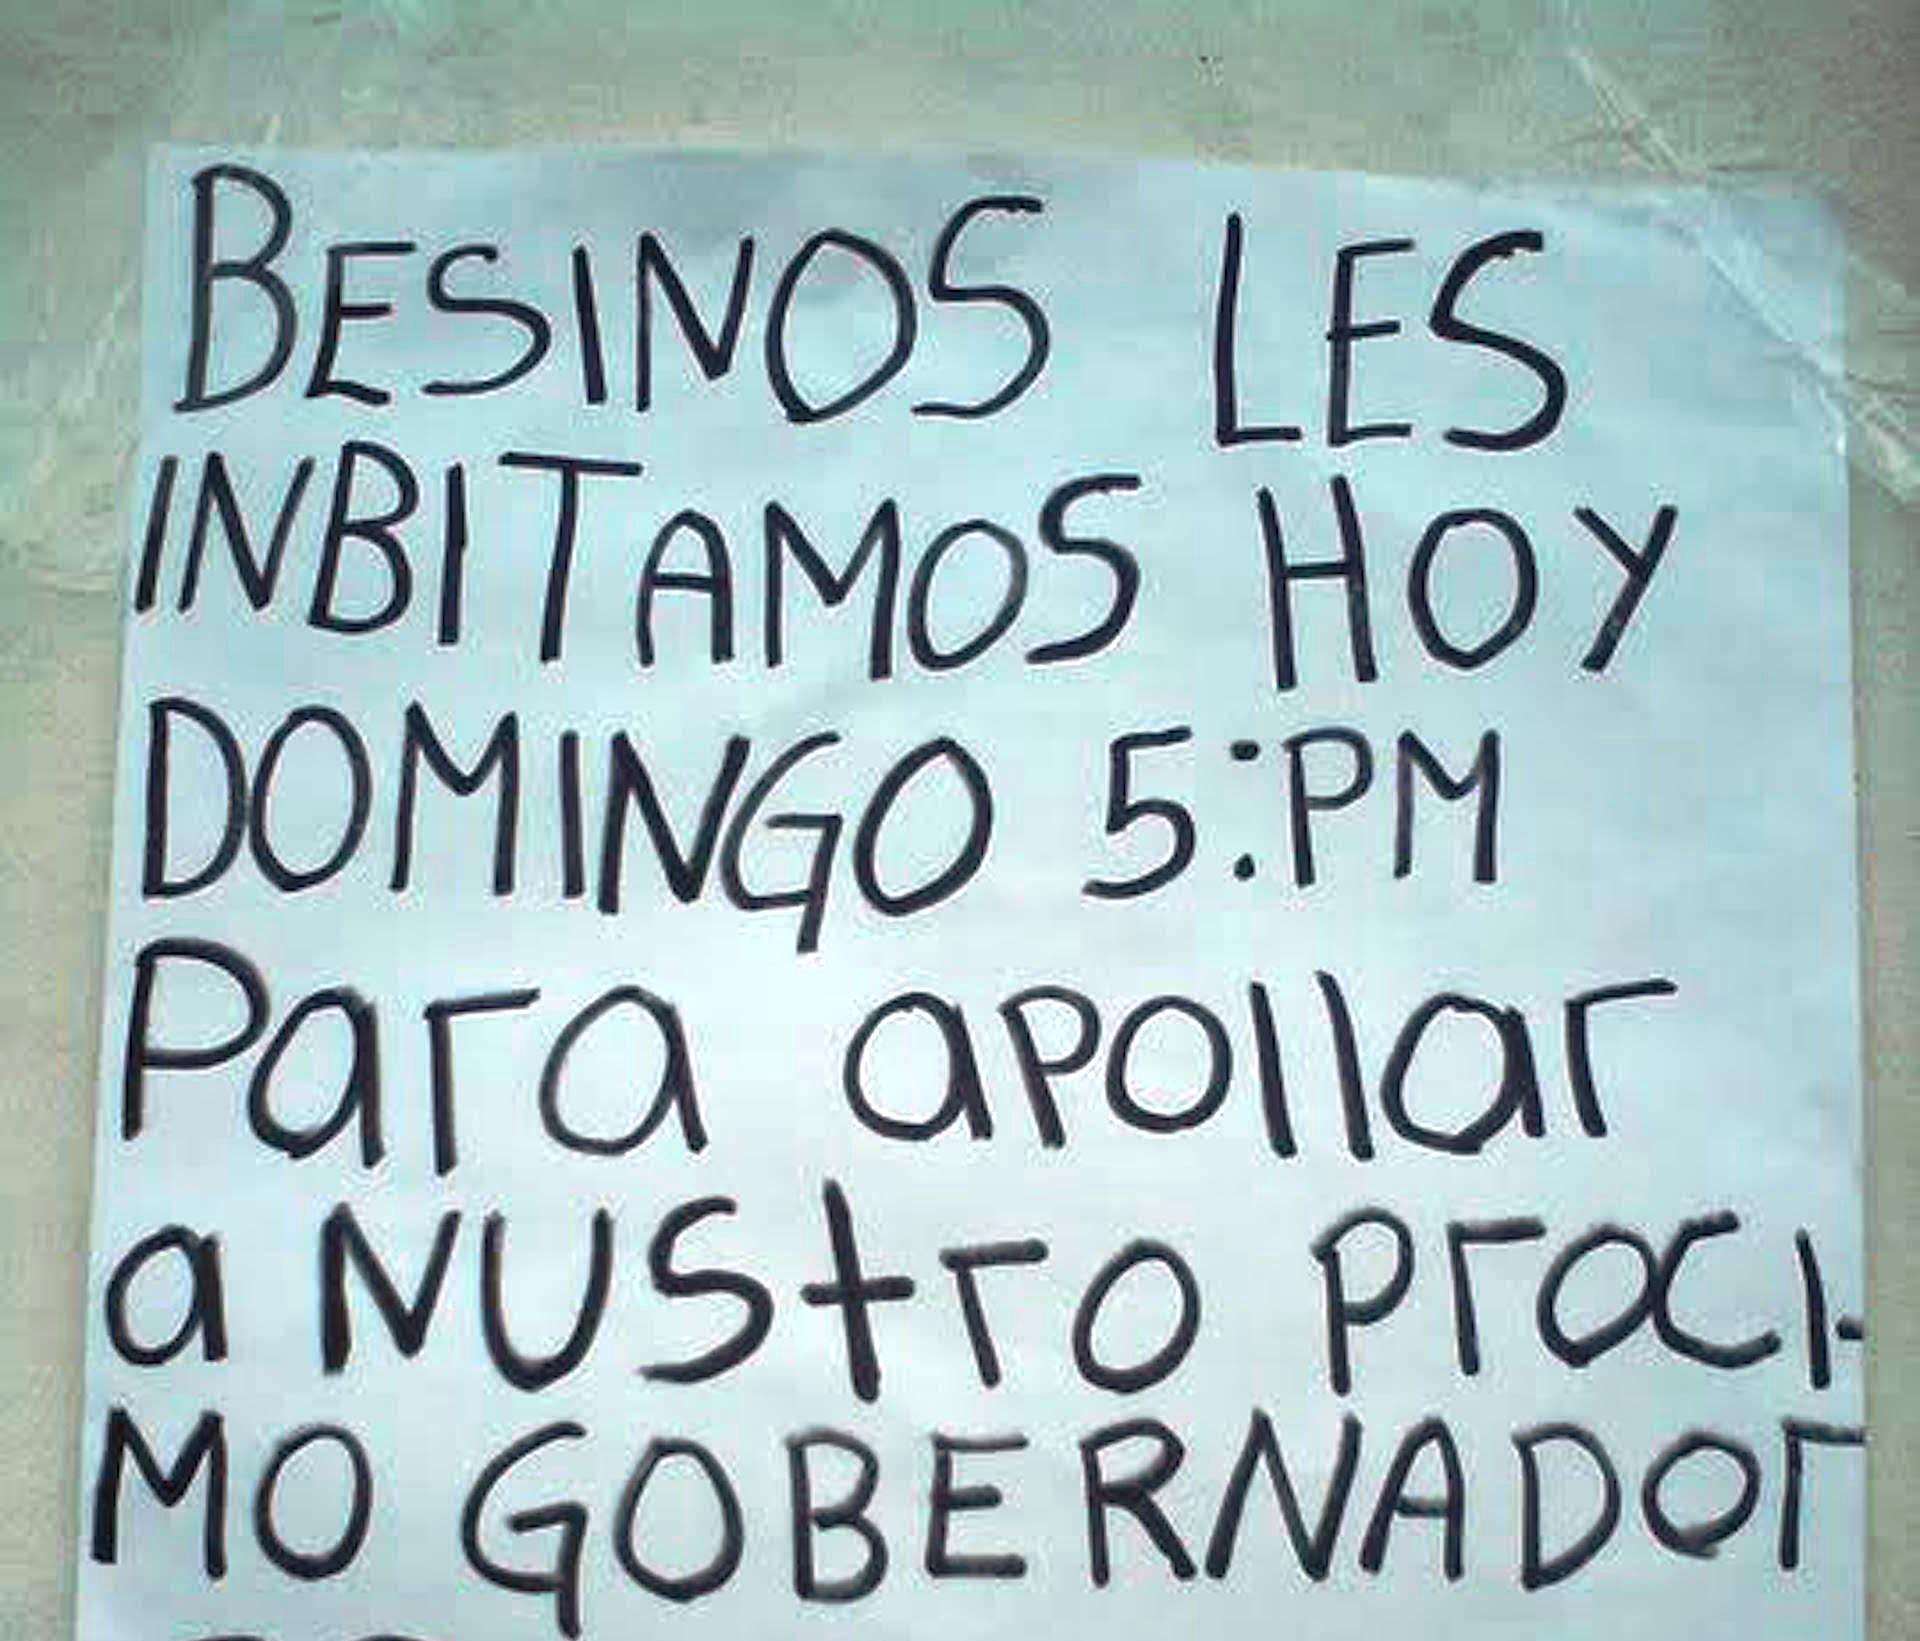 BESINOS LES
INBITAMOS HOY
DOMINGO 5:PM
Para apollar
a NUStro proci-
MO GOBERNADOr